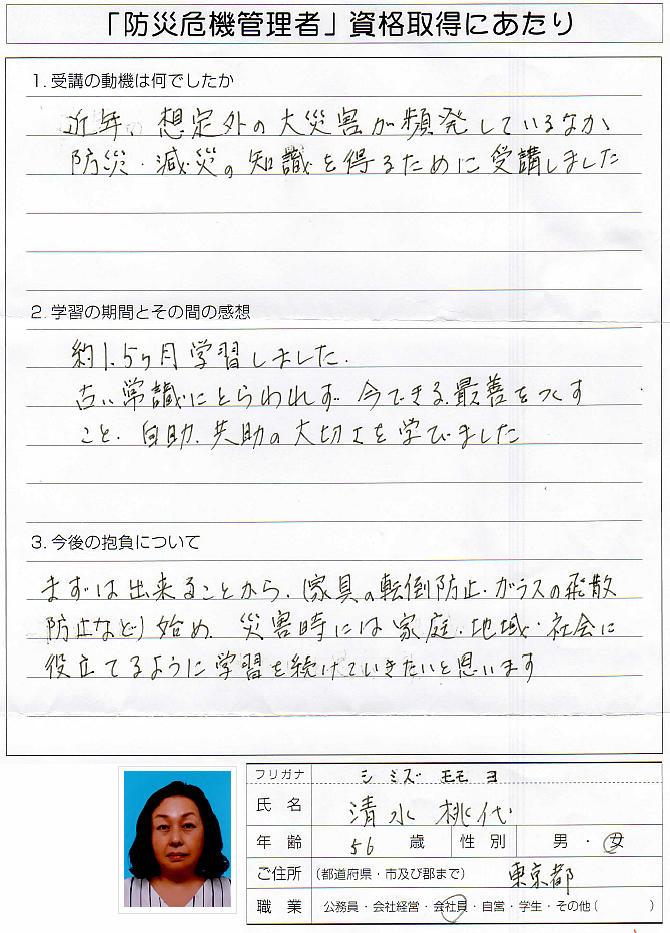 「防災危機管理者」資格取得にあたり
1. 受講の動機は何でしたか
近年、想定外の大災害が頻発しているなか、
防災・減災の知識を得るために受講しました
2. 学習の期間とその間の感想
約1.5ヶ月学習しました.
古い常識にとらわれず 今できる最善をつくす
こと. 自助、共助の大切さを学びました
3. 今後の抱負について
まずは出来ることから、(家具の転倒防止・ガラスの飛散
防止など) 始め、災害時には家庭・地域・社会に
役立てるように学習を続けていきたいと思います
フリガナ シミズ モモヨ
氏 名 清水 桃代
年 齢 56 歳 性 別 男 ・ 女
ご住所 (都道府県・市及び郡まで) 東京都
職 業 公務員・会社経営・会社員・自営・学生・その他( )